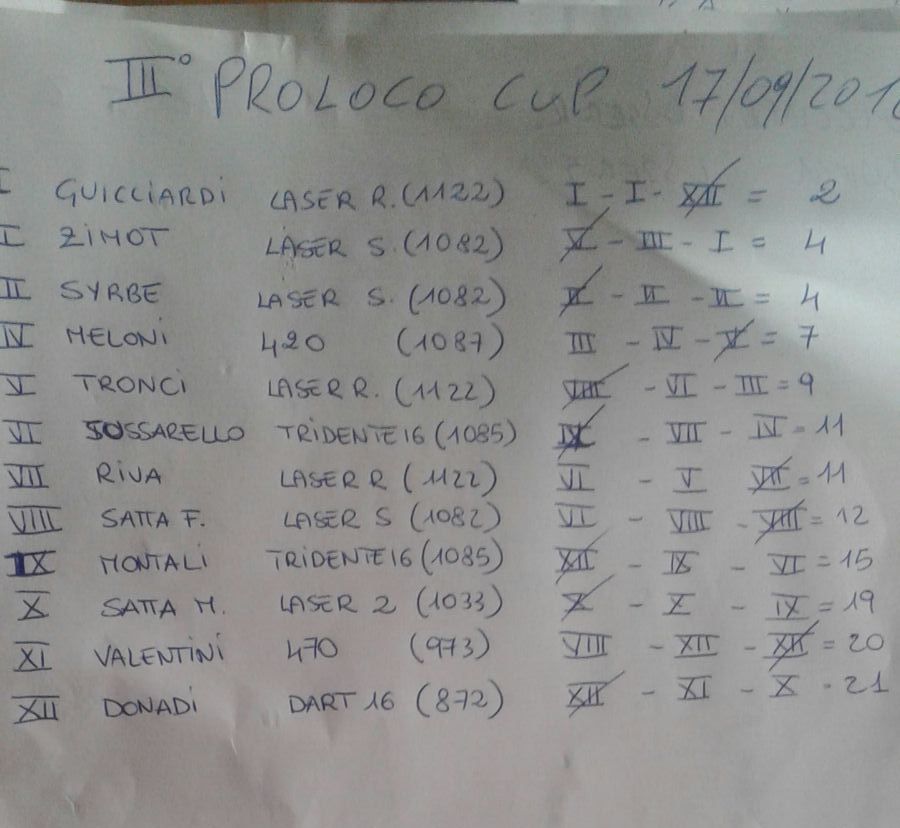 III° PROLOCO CUP 17/09/201
I GUICCIARDI LASER R. (1122) I - I - XII = 2
I ZIMOT LASER S. (1082) V - III - I = 4
II SYRBE LASER S. (1082) II - II - II = 4
IV MELONI 420 (1087) III - IV - V = 7
V TRONCI LASER R. (1122) VIII - VI - III = 9
VI SUSSARELLO TRIDENTE 16 (1085) IX - VII - IV = 11
VII RIVA LASER R (1122) VI - V VII = 11
VIII SATTA F. LASER S (1082) VI - VIII - VIII = 12
IX MONTALI TRIDENTE 16 (1085) XII - IX - VI = 15
X SATTA M. LASER 2 (1033) X - X - IX = 19
XI VALENTINI 470 (973) VIII - XII - XII = 20
XII DONADI DART 16 (872) XII - XI - X - 21